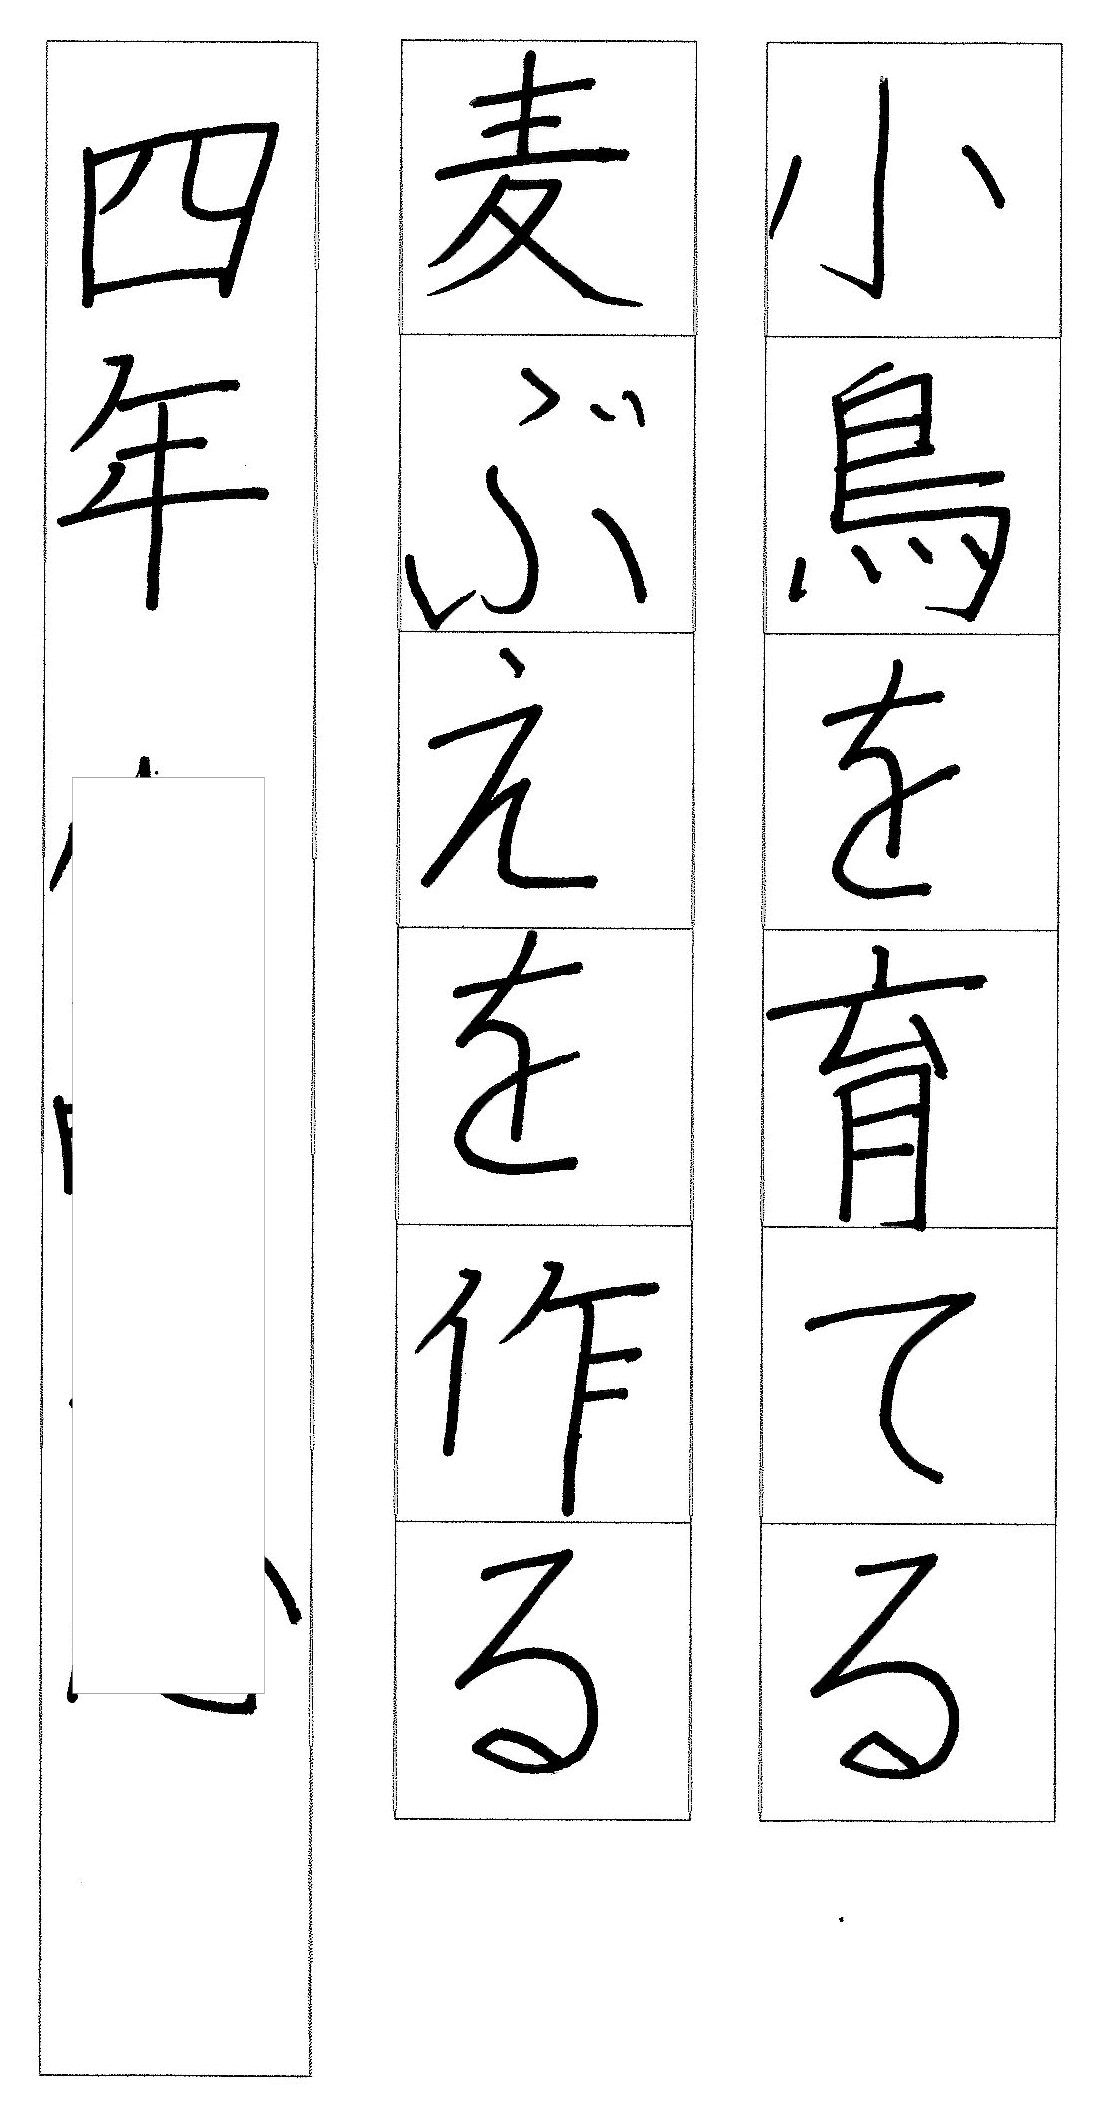 小鳥を育てる
麦ぶえを作る
四年